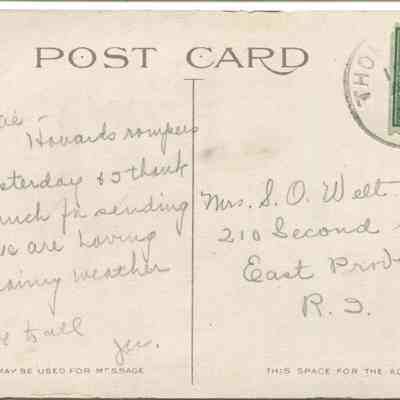 POST CARD
THO
Howards rompers
yesterday & I thank
much for sending
we are having
rainy weather
to all
Jen.
Mrs. S. O. Welt
210 Second
East Prov
R. I.
MAY BE USED FOR MESSAGE
THIS SPACE FOR THE AD